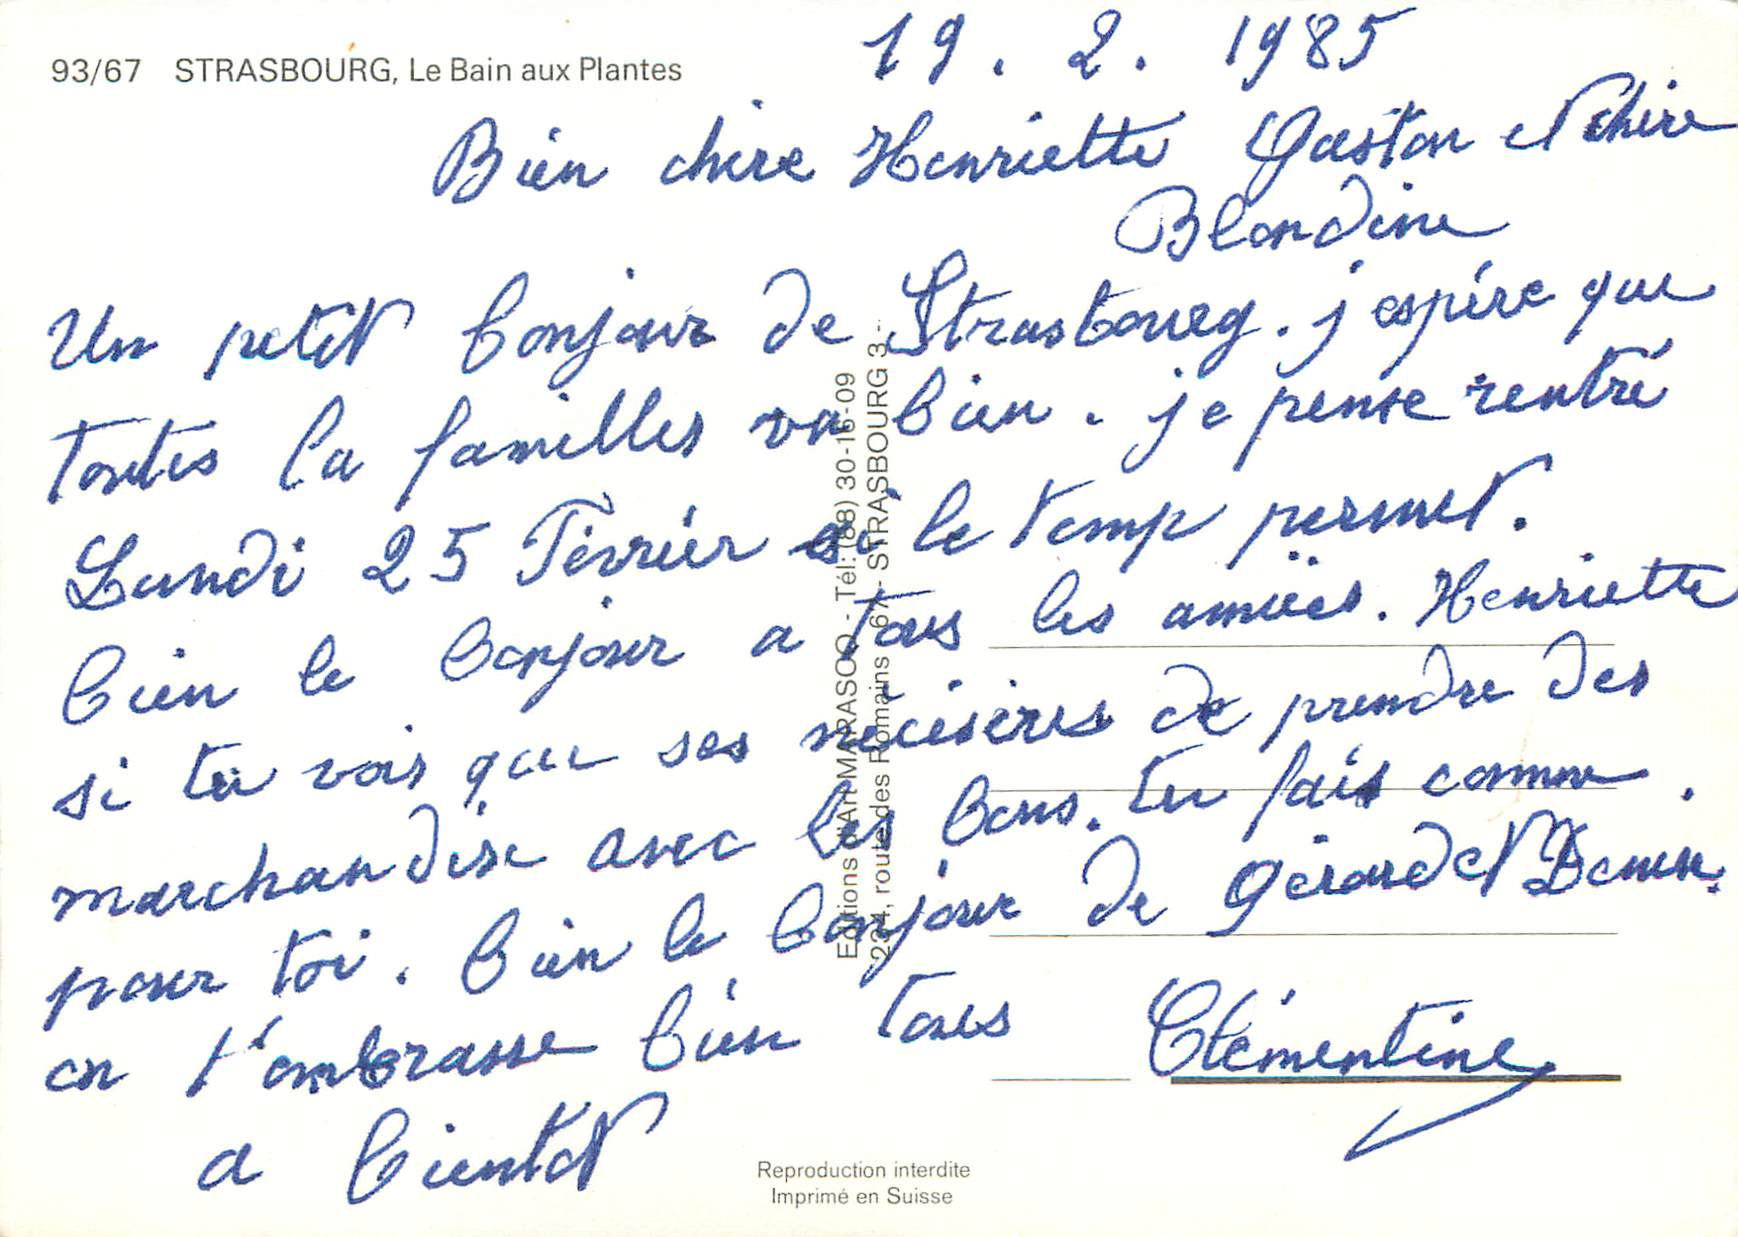 93/67 STRASBOURG, Le Bain aux Plantes
19. 2. 1985
Bien chère Henriette Gaston et chère
Blondine
Un petit bonjour de Strasbourg. j espère que
toutes la familles va bien. je pense rentré
Lundi 25 Février si le temp permet.
bien le bonjour a tous les amiées. Henriette
si tu vois que ses nécisères de prendre des
marchandise avec les bons. tu fais comme
pour toi. bien le bonjour de Gérard et Denise.
on t'embrasse bien tous Clémentine
a bientot
Editions d'Art MARASCO - Tél: (88) 30-16-09
234, route des Romains - 67 - STRASBOURG 3 -
Reproduction interdite
Imprimé en Suisse